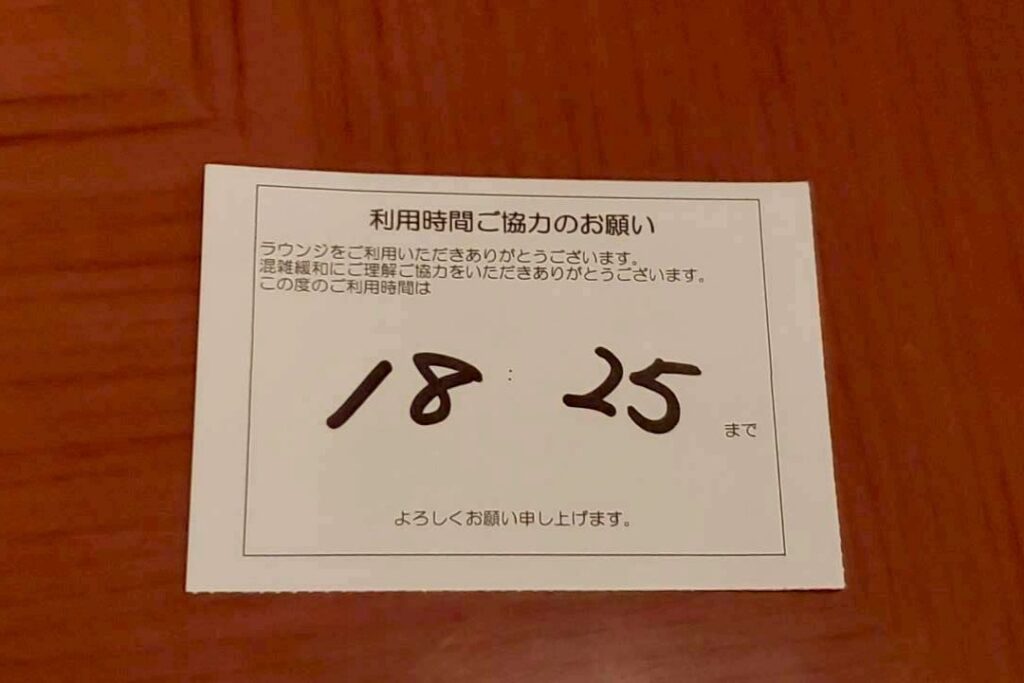 利用時間ご協力のお願い
ラウンジをご利用いただきありがとうございます。
混雑緩和にご理解ご協力をいただきありがとうございます。
この度のご利用時間は
18 : 25 まで
よろしくお願い申し上げます。